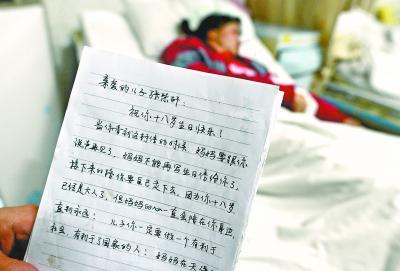 亲爱的儿子
祝你十八岁生日快乐！
当你看到这封信的时候，妈妈要跟你
说声再见了，妈妈不能再写生日信给你了，
接下来的路你要自己走下去，因为你十八岁
已经是大人了，但妈妈的心一直会陪在你身边，
直到永远；儿子你一定要做一个有利于
社会，有利于国家的人；妈妈在天